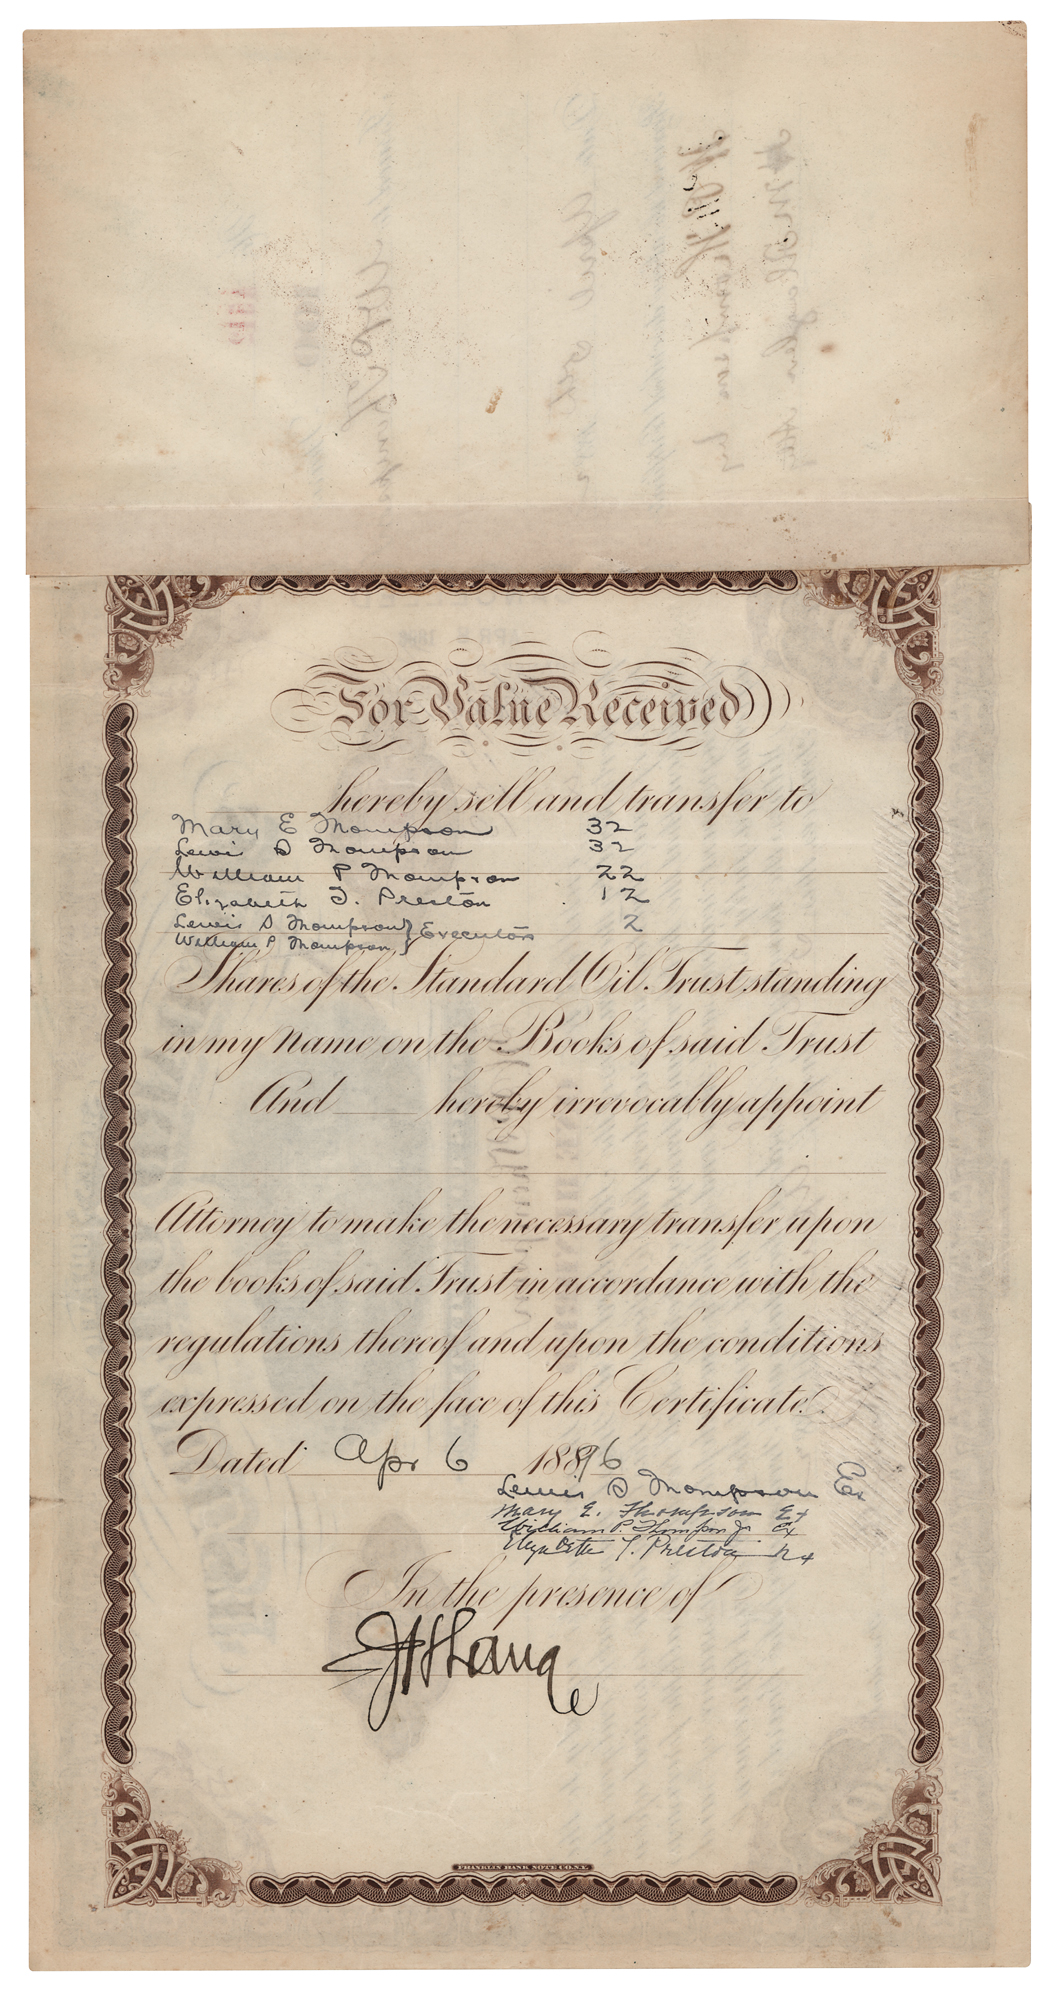 For Value Received
hereby sell and transfer to
Mary E Thompson 32
Lewis S Thompson 32
William P Thompson 22
Elizabeth T. Preston 12
Lewis S Thompson } Executors 2
William P Thompson
Shares of the Standard Oil Trust standing
in my name on the Books of said Trust
And hereby irrevocably appoint
Attorney to make the necessary transfer upon
the books of said Trust in accordance with the
regulations thereof and upon the conditions
expressed on the face of this Certificate.
Dated Apr 6 1896
Lewis S Thompson Ex
Mary E. Thompson Ex
William P. Thompson Jr Ex
Elizabeth T. Preston Ex
In the presence of
FRANKLIN BANK NOTE CO. N.Y.